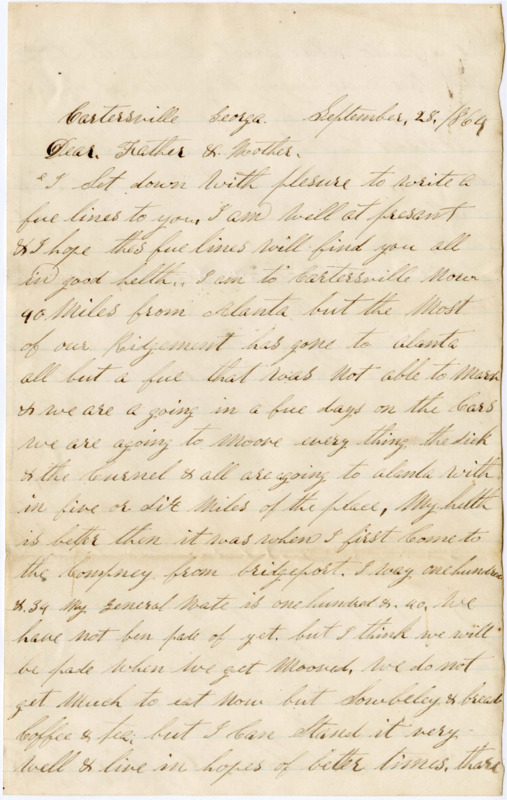 Cartersville Georga. September, 28, 1864
Dear. Father & Mother.
I Set down with plesure to write a
fue lines to you, I am well at presant
& I hope this fue lines will find you all
in good helth.. I am to Cartersville Now
40 Miles from Alanta but the Most
of our Ridgement has gone to alanta
all but a fue that was Not able to March
& we are a going in a fue days on the Cars
we are agoing to Moove every thing the Sick
& the Curnel & all are agoing to alanta with
in five or Six Miles of the place, My helth
is better then it was when I first Come to
the Compney from bridgeport. I way one hundred
& 34 My General Wate is one hundred & 40. We
have not ben pade of yet. but I think we will
be pade when we get Mooved, We do not
get Much to eat Now but Sowbeley & bread
Coffee & tea. but I Can Stand it very
well & live in hopes of better times, thare